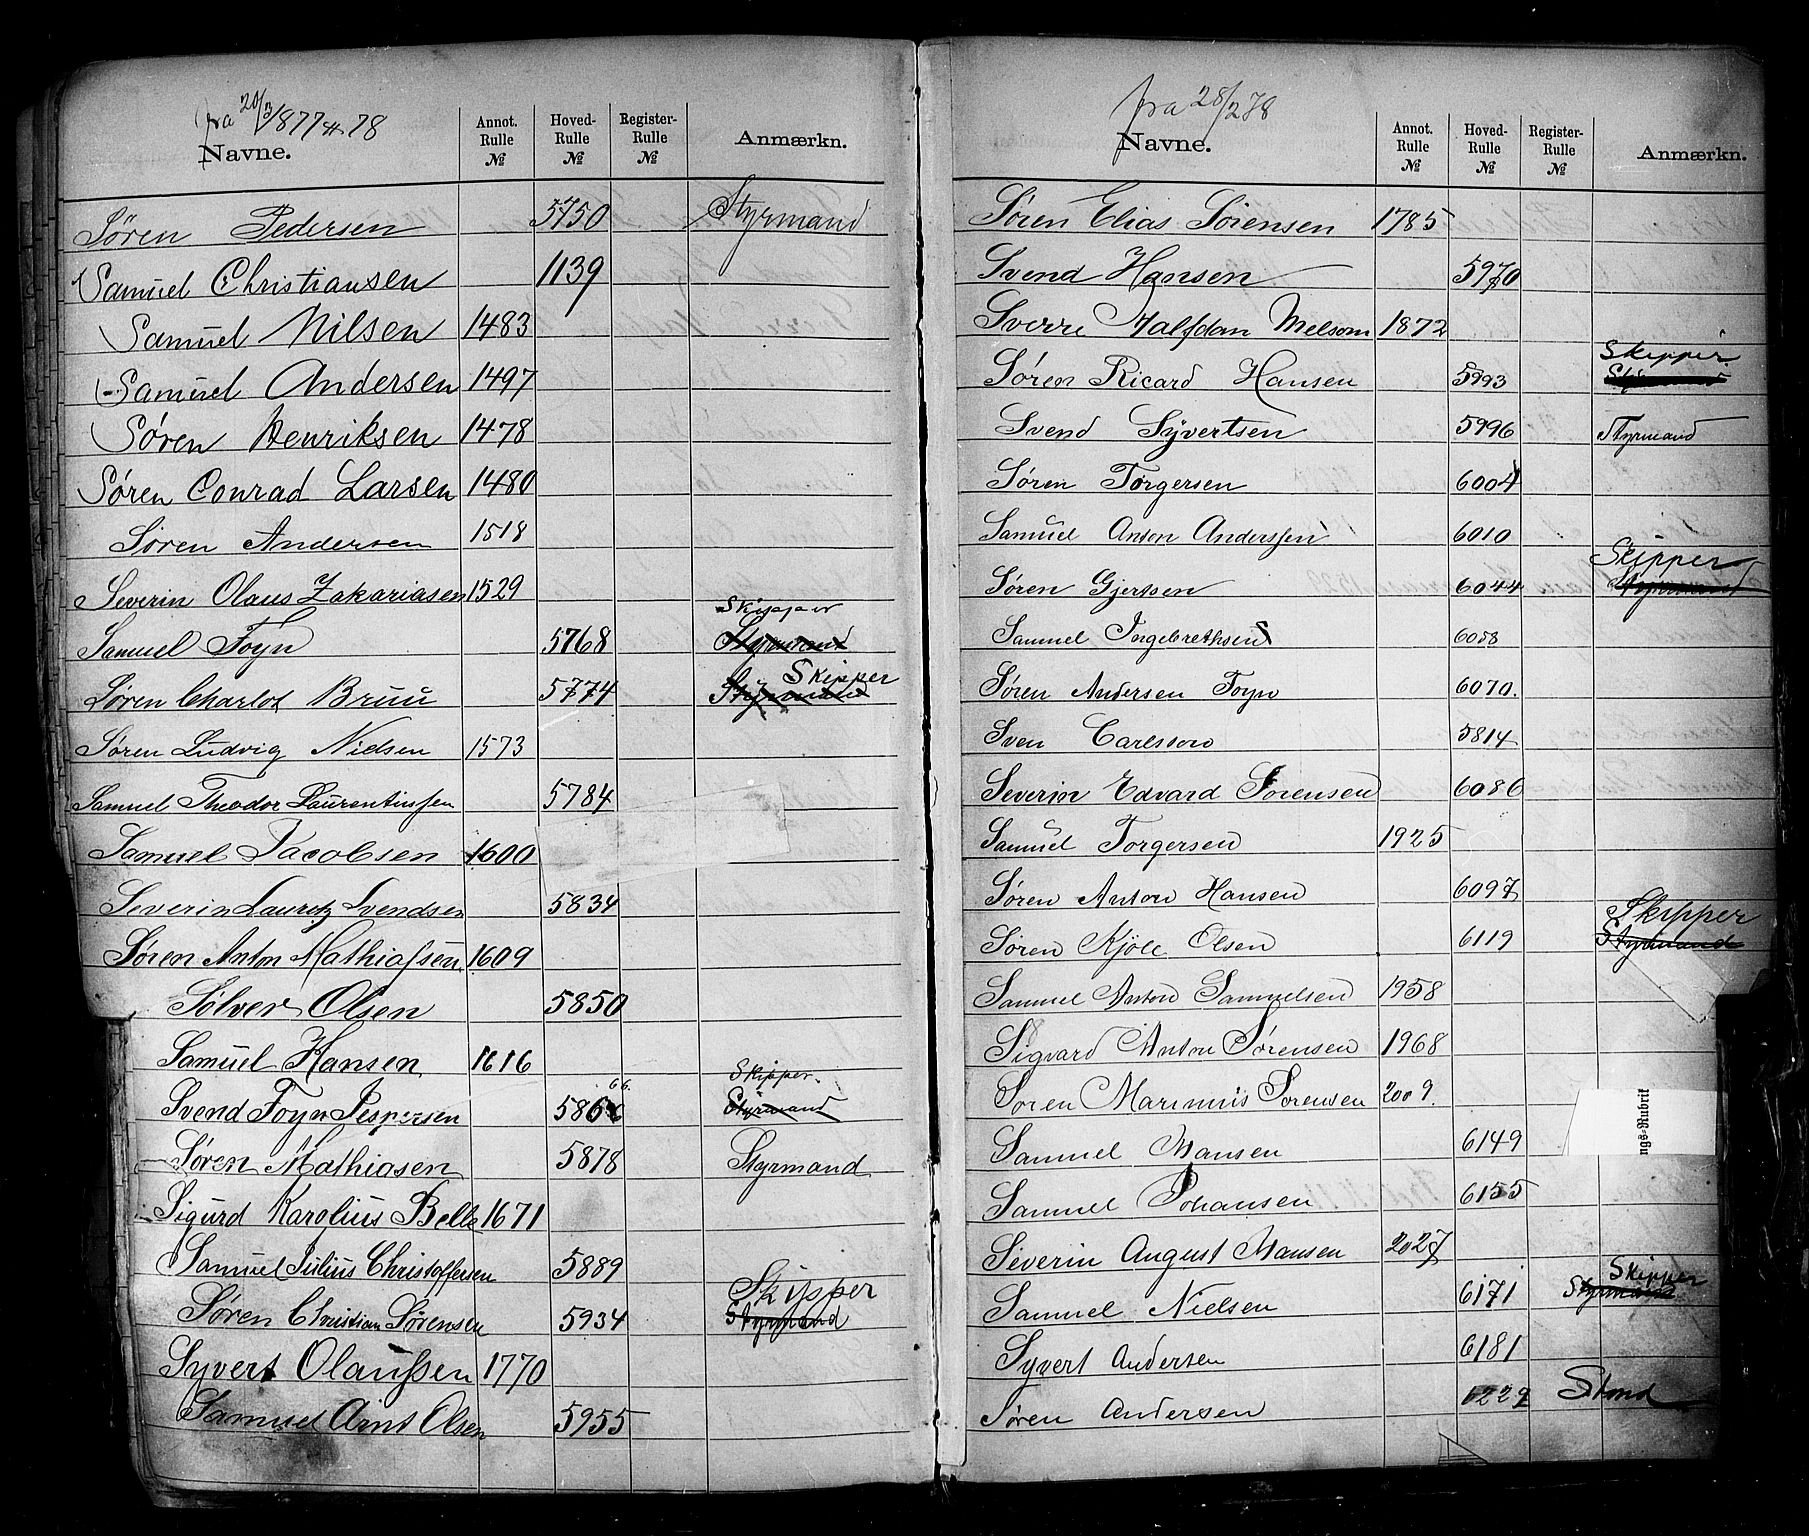 fra 20/3 1877 & 78
Navne. Annot. Rulle № Hoved-Rulle № Register-Rulle № Anmærkn.
Søren Pedersen 5750 Styrmand
Samuel Christiansen 1139
Samuel Nilsen 1483
Samuel Andersen 1497
Søren Henriksen 1478
Søren Conrad Larsen 1480
Søren Andersen 1518
Severin Olaus Zakariasen 1529
Skipper
Samuel Foyn 5768 Styrmand
Skipper
Søren Charlot Bruu 5774 Styrmand
Søren Ludvig Nielsen 1573
Samuel Theodor Laurentiussen 5784
Samuel Jacobsen 1600
Severin Lauritz Svendsen 5834
Søren Anton Mathiassen 1609
Sølver Olsen 5850
Samuel Hansen 1616
66. Skipper.
Svend Foyn Jespersen 586 Styrmand
Søren Mathiasen 5878 Styrmand
Sigurd Karolius Belle 1671
Samuel Julius Christoffersen 5889
Skipper
Søren Christian Sørensen 5934 Styrmand
Syvert Olaussen 1770
Samuel Arnt Olsen 5955
fra 28/2 78
Navne. Annot. Rulle № Hoved-Rulle № Register-Rulle № Anmærkn.
Søren Elias Sørensen 1785
Svend Hansen 5970
Sverre Halfdan Melsom 1872
Skipper
Søren Ricard Hansen 5993 Styrmand
Svend Syvertsen 5996 Styrmand
Søren Torgersen 6004
Samuel Anton Anderssen 6010
Skipper
Søren Gjertsen 6044 Styrmand
Samuel Ingebrethsen 6053
Søren Andersen Foyn 6070.
Sven Carlsson 5814
Severin Edvard Sørensen 6086
Samuel Torgersen 1925
Søren Anton Hansen 6097
Skipper
Søren Kjöle Olsen 6119 Styrmand
Samuel Anton Samuelsen 1958
Sigvard Anton Sørensen 1968
Soren Marinius Sorensen 2009.
Samuel Hansen 6149
ngs-Rubrik
Samuel Johansen 6155
Severin August Hansen 2027
Skipper
Samuel Nielsen 6171 Styrmand
Syvert Andersen 6181
Søren Andersen 6229